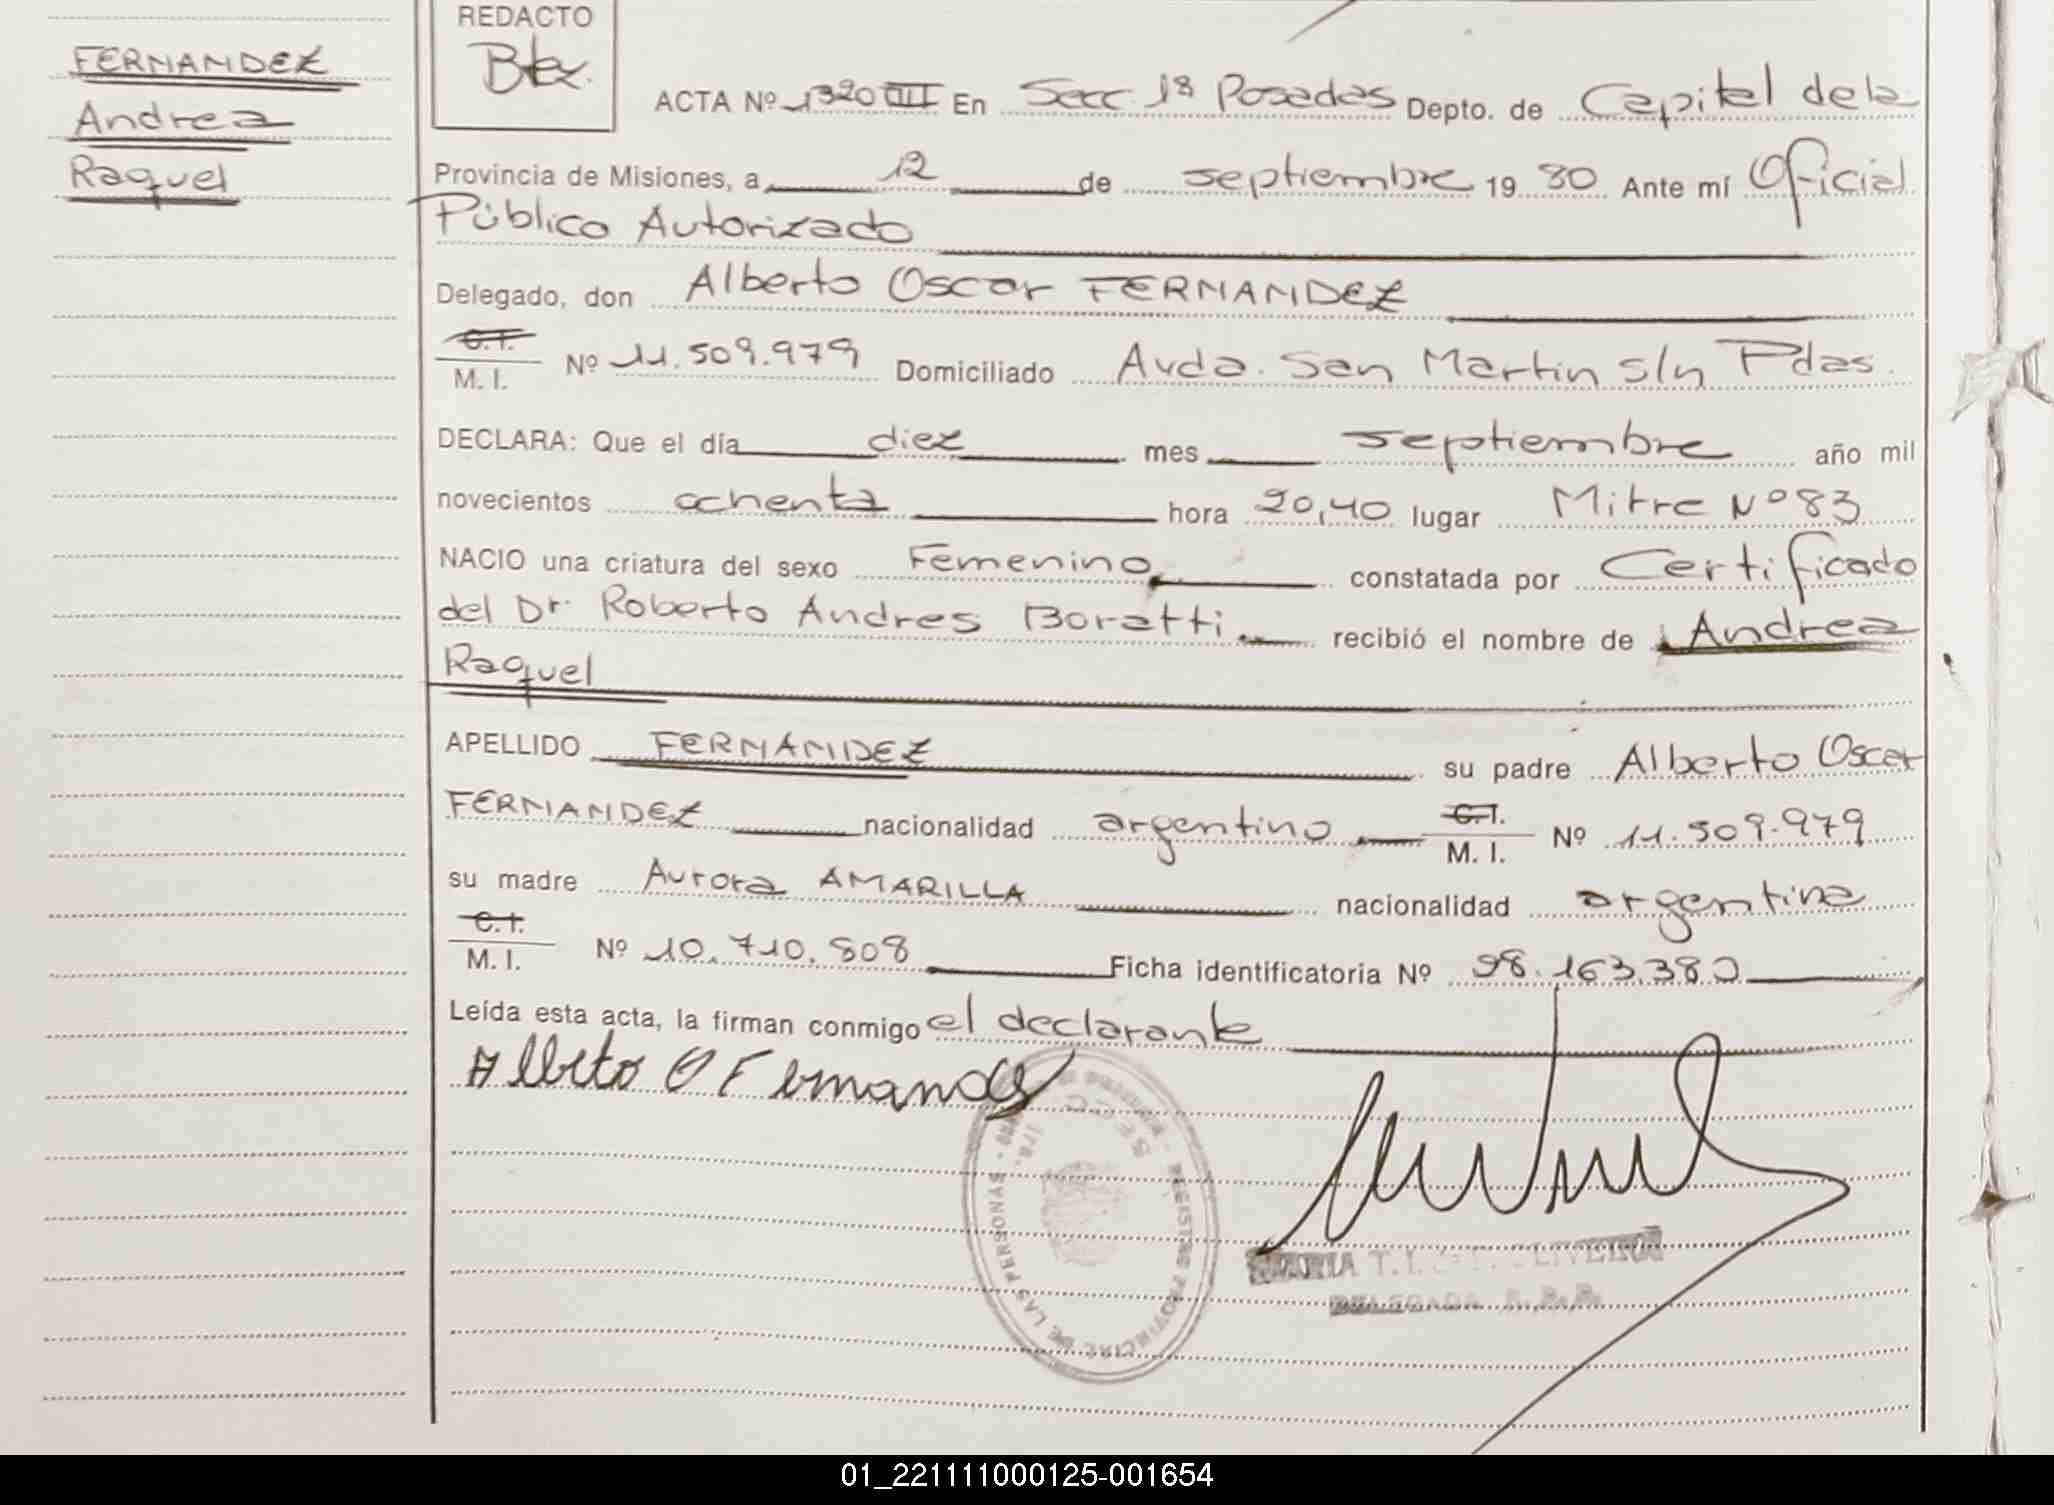 FERNANDEZ
Andrea
Raquel
REDACTO
ACTA Nº 1320 III En Secc. 1ª Posadas Depto. de Capital de la
Provincia de Misiones, a 12 de septiembre 19 80 Ante mí Oficial
Público Autorizado
Delegado, don Alberto Oscar FERNANDEZ
C.I.
M. I. Nº 11.509.979 Domiciliado Avda. San Martin s/n Pdas.
DECLARA: Que el día diez mes septiembre año mil
novecientos ochenta hora 20,40 lugar Mitre Nº 83
NACIO una criatura del sexo Femenino constatada por Certificado
del Dr. Roberto Andres Boratti recibió el nombre de Andrea
Raquel
APELLIDO FERNANDEZ su padre Alberto Oscar
FERNANDEZ nacionalidad argentino C.I. M. I. Nº 11.509.979
su madre Aurora AMARILLA nacionalidad argentina
C.I.
M. I. Nº 10.710.808 Ficha identificatoria Nº 98.163.380
Leída esta acta, la firman conmigo el declarante
Alberto O Fernandez
REGISTRO PROVINCIAL DE LAS PERSONAS
SECC. 1ra.
MARIA T.
DELEGADA
01_221111000125-001654